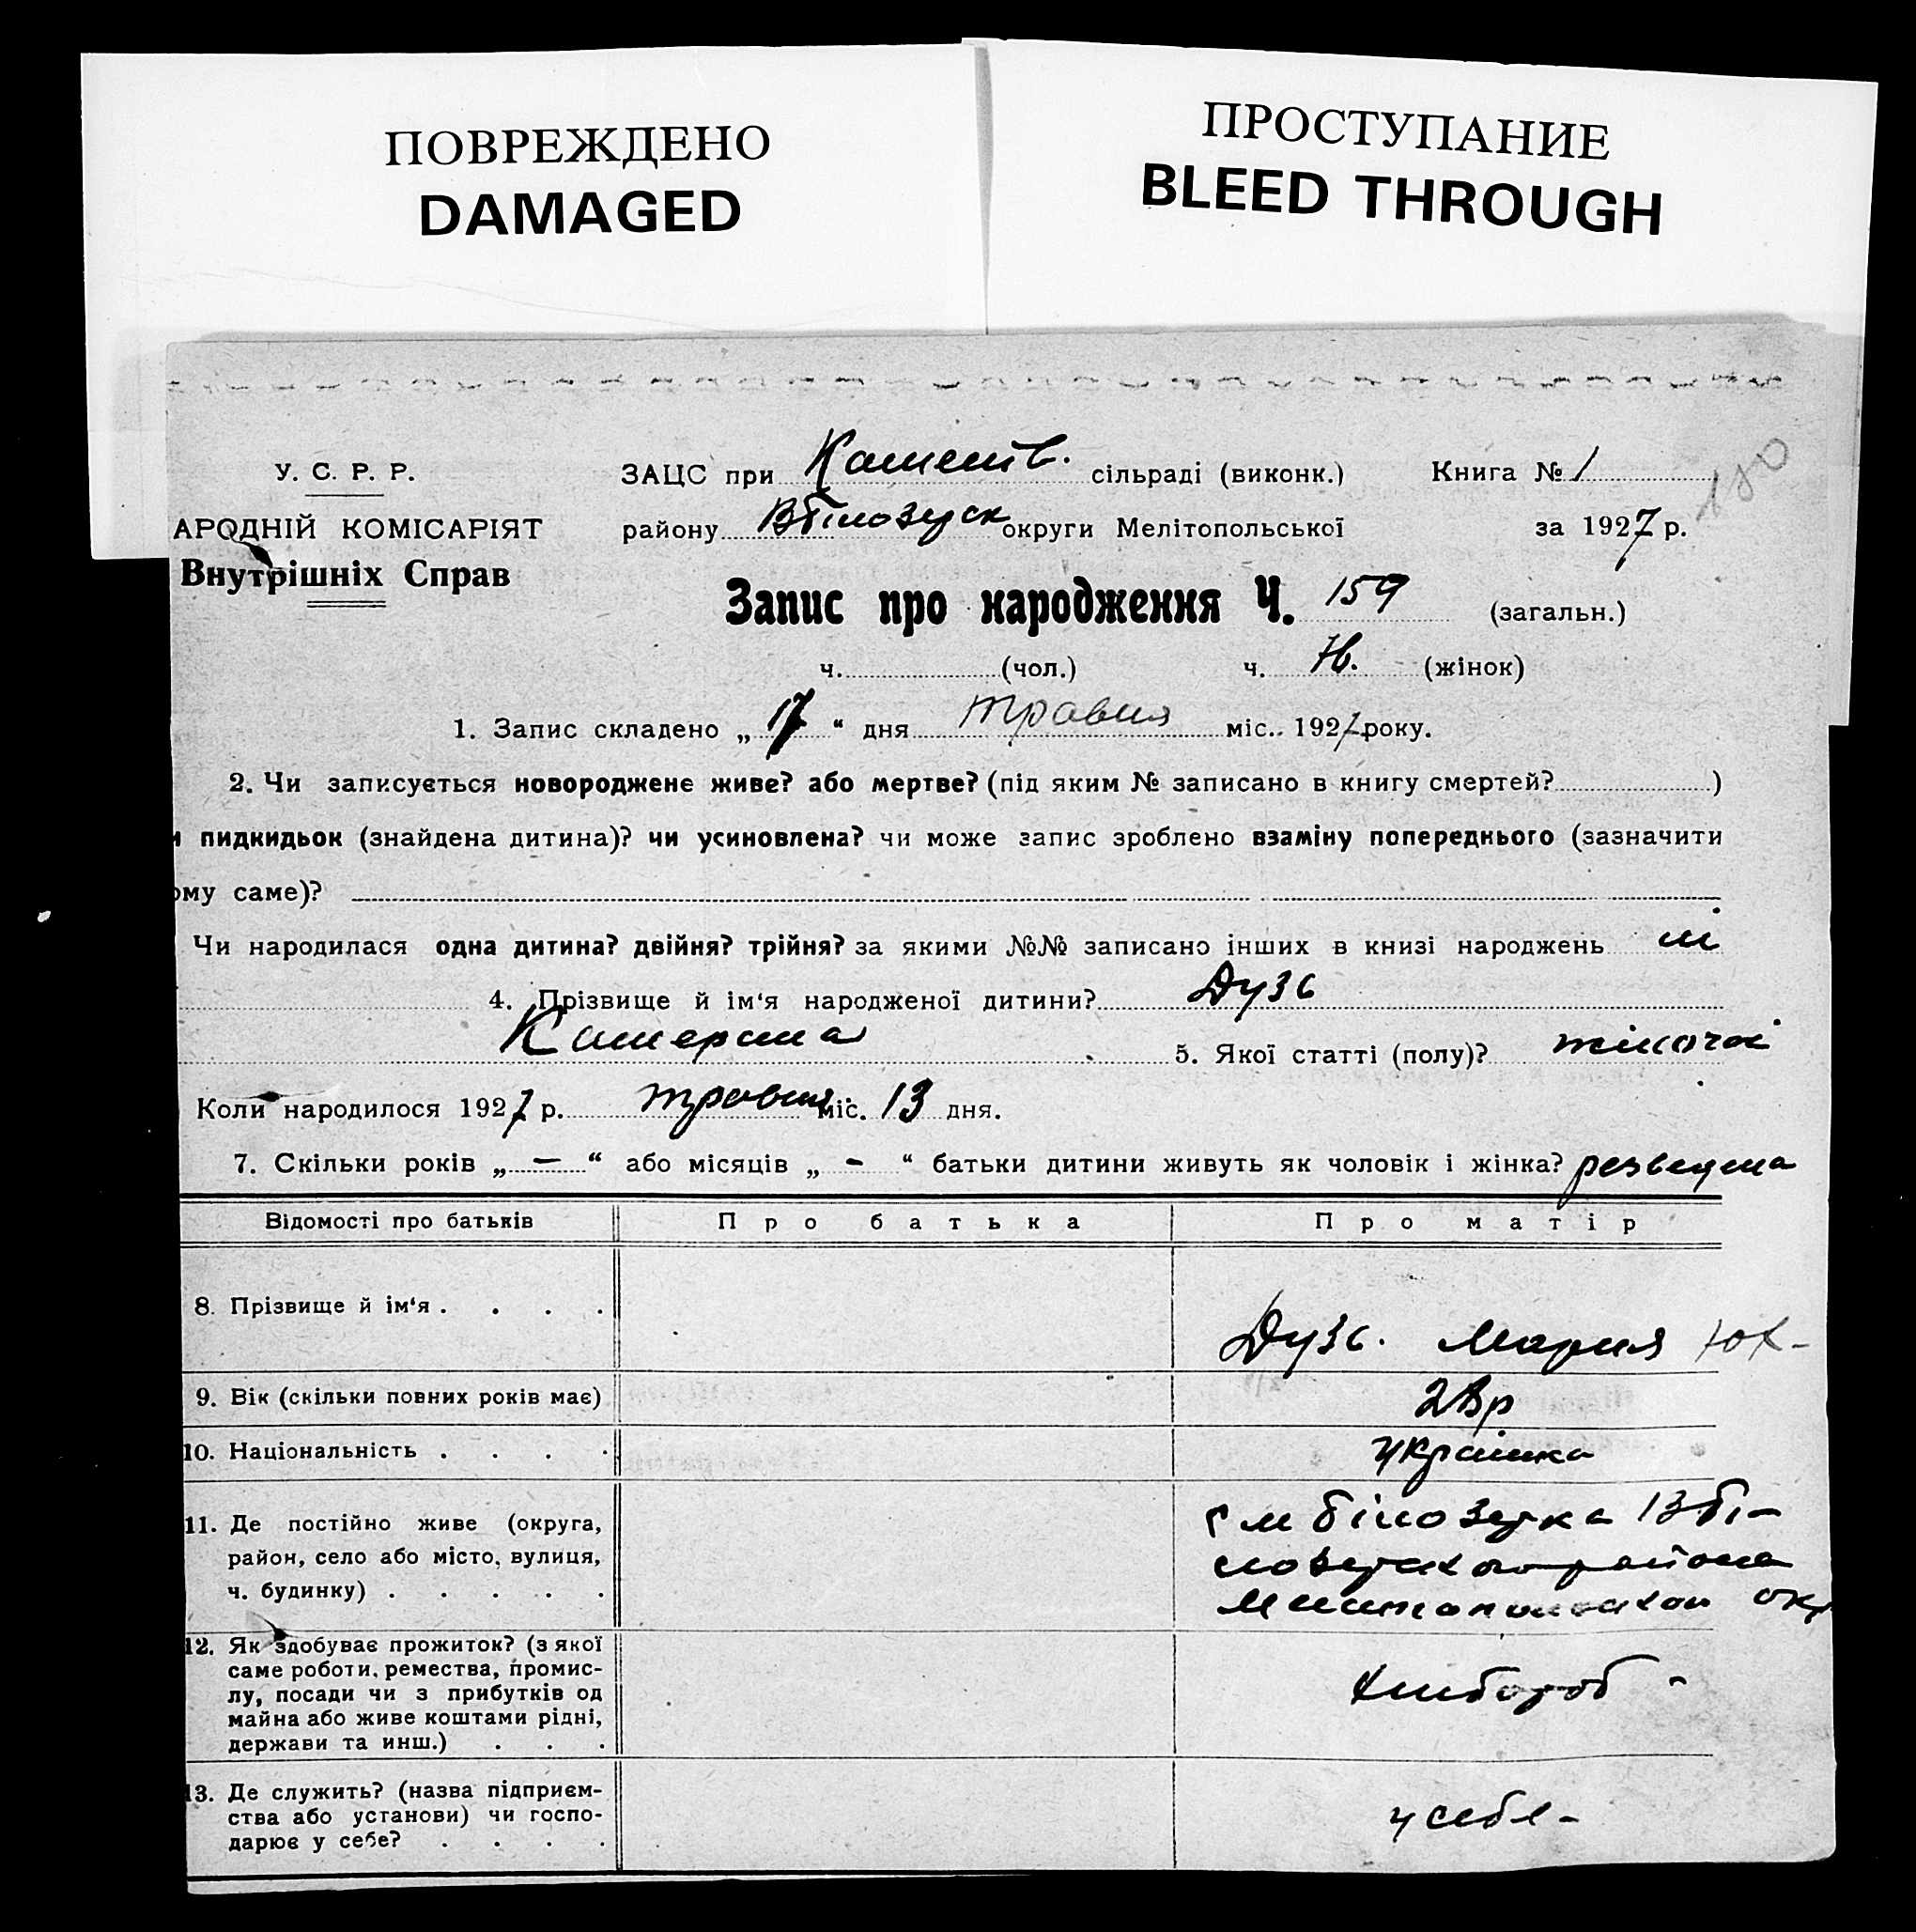 ПОВРЕЖДЕНО
DAMAGED
ПРОСТУПАНИЕ
BLEED THROUGH
180
У. С. Р. Р.
АРОДНІЙ КОМІСАРІЯТ
Внутрішніх Справ
ЗАЦС при сільраді (виконк.) Книга № 1
району ВБілозерск округи Мелітопольської за 1927 р.
Запис про народження Ч. 159 (загальн.)
ч. (чол.) ч. (жінок)
1. Запис складено „ 17 “ дня травня міс.. 1927 року.
2. Чи записується новороджене живе? або мертве? (під яким № записано в книгу смертей? )
и пидкидьок (знайдена дитина)? чи усиновлена? чи може запис зроблено взаміну попереднього (зазначити
ому саме)?
Чи народилася одна дитина? двійня? трійня? за якими №№ записано інших в книзі народжень ні
4. Прізвище й ім‘я народженої дитини? Дузь
Катерина 5. Якої статті (полу)? жіночої
Коли народилося 1927 р. травня міс. 13 дня.
7. Скільки років „ — “ або місяців „ - “ батьки дитини живуть як чоловік і жінка? розведена
Відомості про батьків Про батька Про матір
8. Прізвище й ім‘я . . . . Дузь. Мария Юх-
9. Вік (скільки повних років має) 28р
10. Національність . . . . Українка
11. Де постійно живе (округа,
район, село або місто, вулиця,
ч. будинку) . . . . .
білозерка Вбі-
лозерского района
Мелитопольской окр
12. Як здобуває прожиток? (з якої
саме роботи, ремества, промис-
лу, посади чи з прибутків од
майна або живе коштами рідні,
держави та инш.) . . .
хлібороб -
13. Де служить? (назва підприєм-
ства або установи) чи госпо-
дарює у себе? . . . .
у себе -